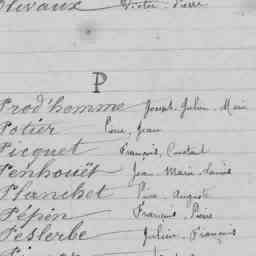 Olivaux Victor Pierre
P
Prod'homme Joseph Julien Marie
Potier Pierre Jean
Picquet François Constant
Penhouët Jean Marie Louis
Planchet Pierre Auguste
Pépin François Pierre
Peslerbe Julien François